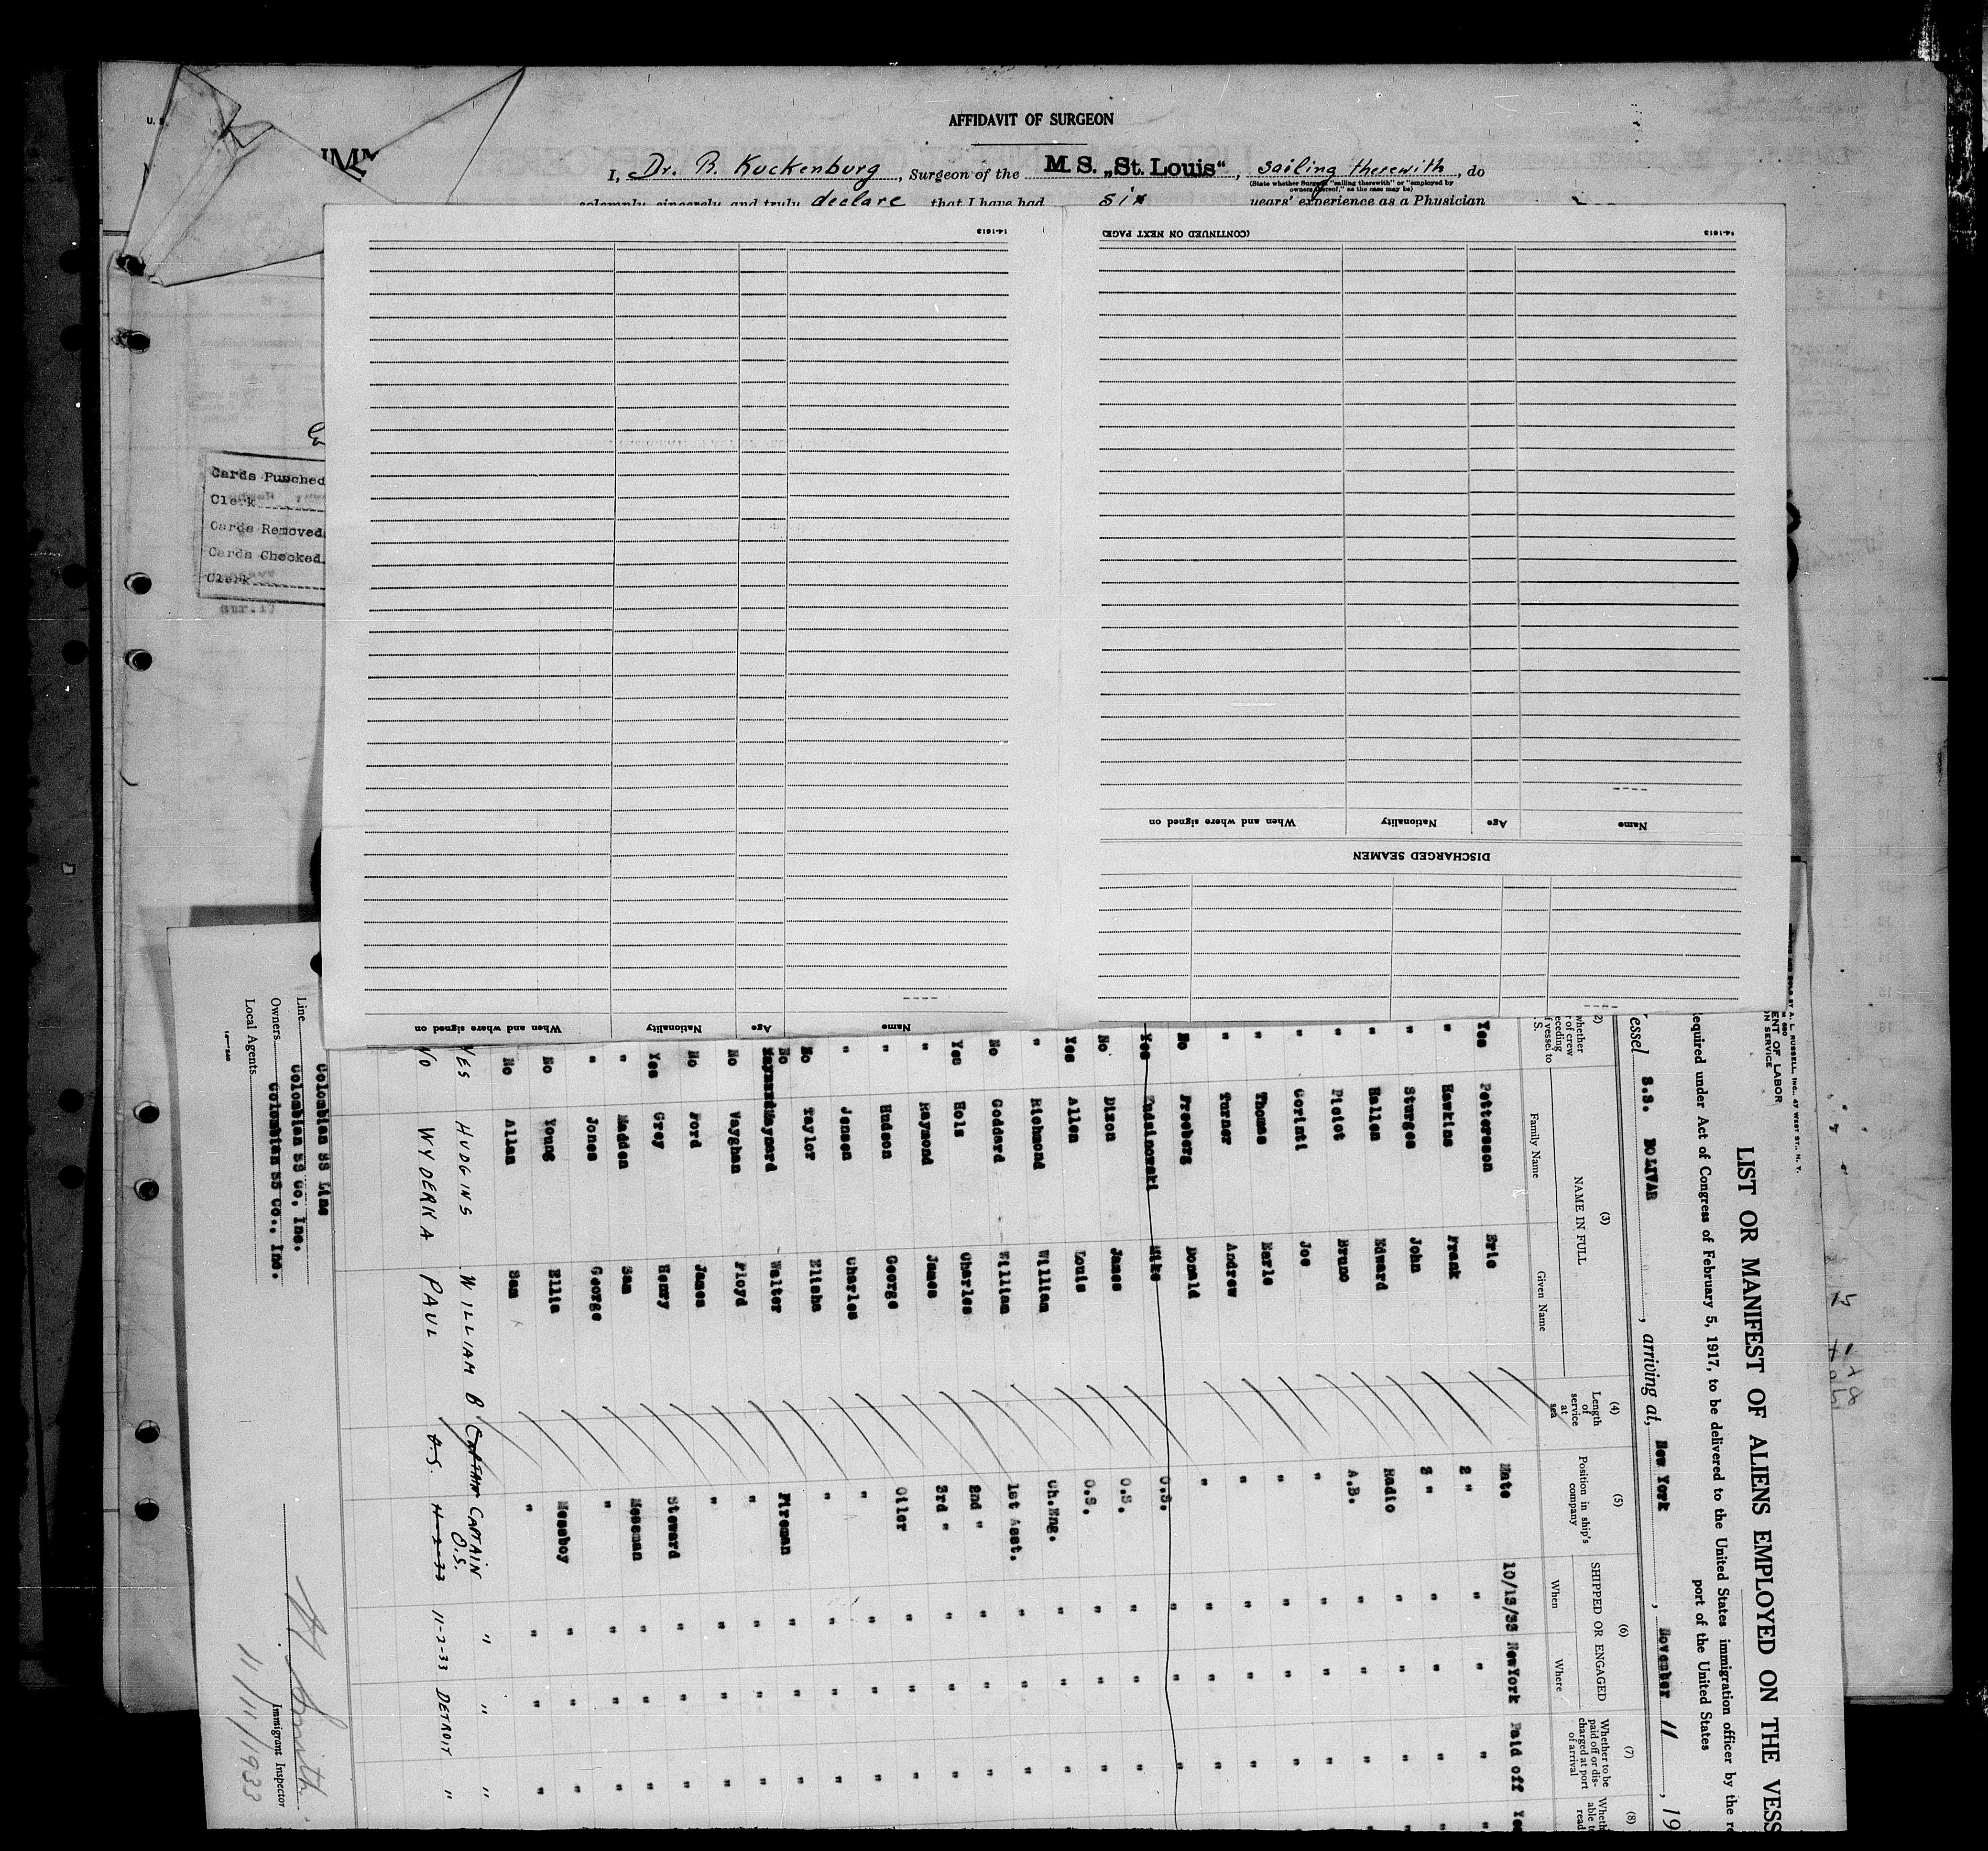 U. S.
AFFIDAVIT OF SURGEON
I, Dr. R. Kuckenburg, Surgeon of the M. S. „St. Louis“, sailing therewith, do
(State whether Surgeon "sailing therewith" or "employed by owners thereof," as the case may be)
solemnly, sincerely, and truly declare that I have had six years' experience as a Physician
Cards Punched
Clerk
Cards Removed
Cards Checked
Clerk
14-1613
When and where signed on Nationality Age Name
14-1613
(CONTINUED ON NEXT PAGE)
DISCHARGED SEAMEN
Name Age Nationality When and where signed on
A. L. RUSSELL, INC., 47 WEST ST., N. Y.
ENT OF LABOR
ON SERVICE
LIST OR MANIFEST OF ALIENS EMPLOYED ON THE VESS
equired under Act of Congress of February 5, 1917, to be delivered to the United States immigration officer by the re
port of the United States
essel S.S. BOLIVAR, arriving at, New York, November 11, 19
(2) (3) (4) (5) (6) (7) (8)
NAME IN FULL
Family Name Given Name
Length of service at sea
Position in ship's company
SHIPPED OR ENGAGED
When Where
Whether to be paid off or discharged at port of arrival
Yes Petterson Eric Mate 10/13/33 NewYork Paid off Yes
" Hawkins Frank 2 " " " " "
" Sturges John 3 " " " "
" Hallen Edward Radio " " "
" Pictot Bruno A.B. " " "
" Corinti Joe " " " "
" Thomas Earle " " " "
" Turner Andrew " " " "
No Freeberg Donald " " " "
Yes Mike O.S. " " "
No Dixon James O.S. " " "
Yes Allen Louis O.S. " " "
" Richmond William Ch.Eng. " " "
No Goddard William 1st Asst. " " "
Yes Hols Charles 2nd " " " "
" Raymond James 3rd " " " "
" Hudson George Oiler " " "
" Jensen Charles " " " "
No Taylor Elisha " " " "
No Maynard Walter Fireman " " "
No Vaughan Floyd " " " "
No Ford James " " " "
Yes Grey Henry Steward " " "
" Madden Sam Messman " " "
" Jones George " " " "
No Young Ellis Messboy " " "
No Allan Sam " " " "
YES HUDGINS WILLIAM B CAPTAIN CAPTAIN " " "
NO WYDERKA PAUL O.S. O.S. 11-2-33 11-2-33 DETROIT "
Line Colombian SS Line
Owners Colombian SS Co, Inc.
Local Agents Colombian SS Co., Inc.
Smith
Immigrant Inspector
11/11/1933